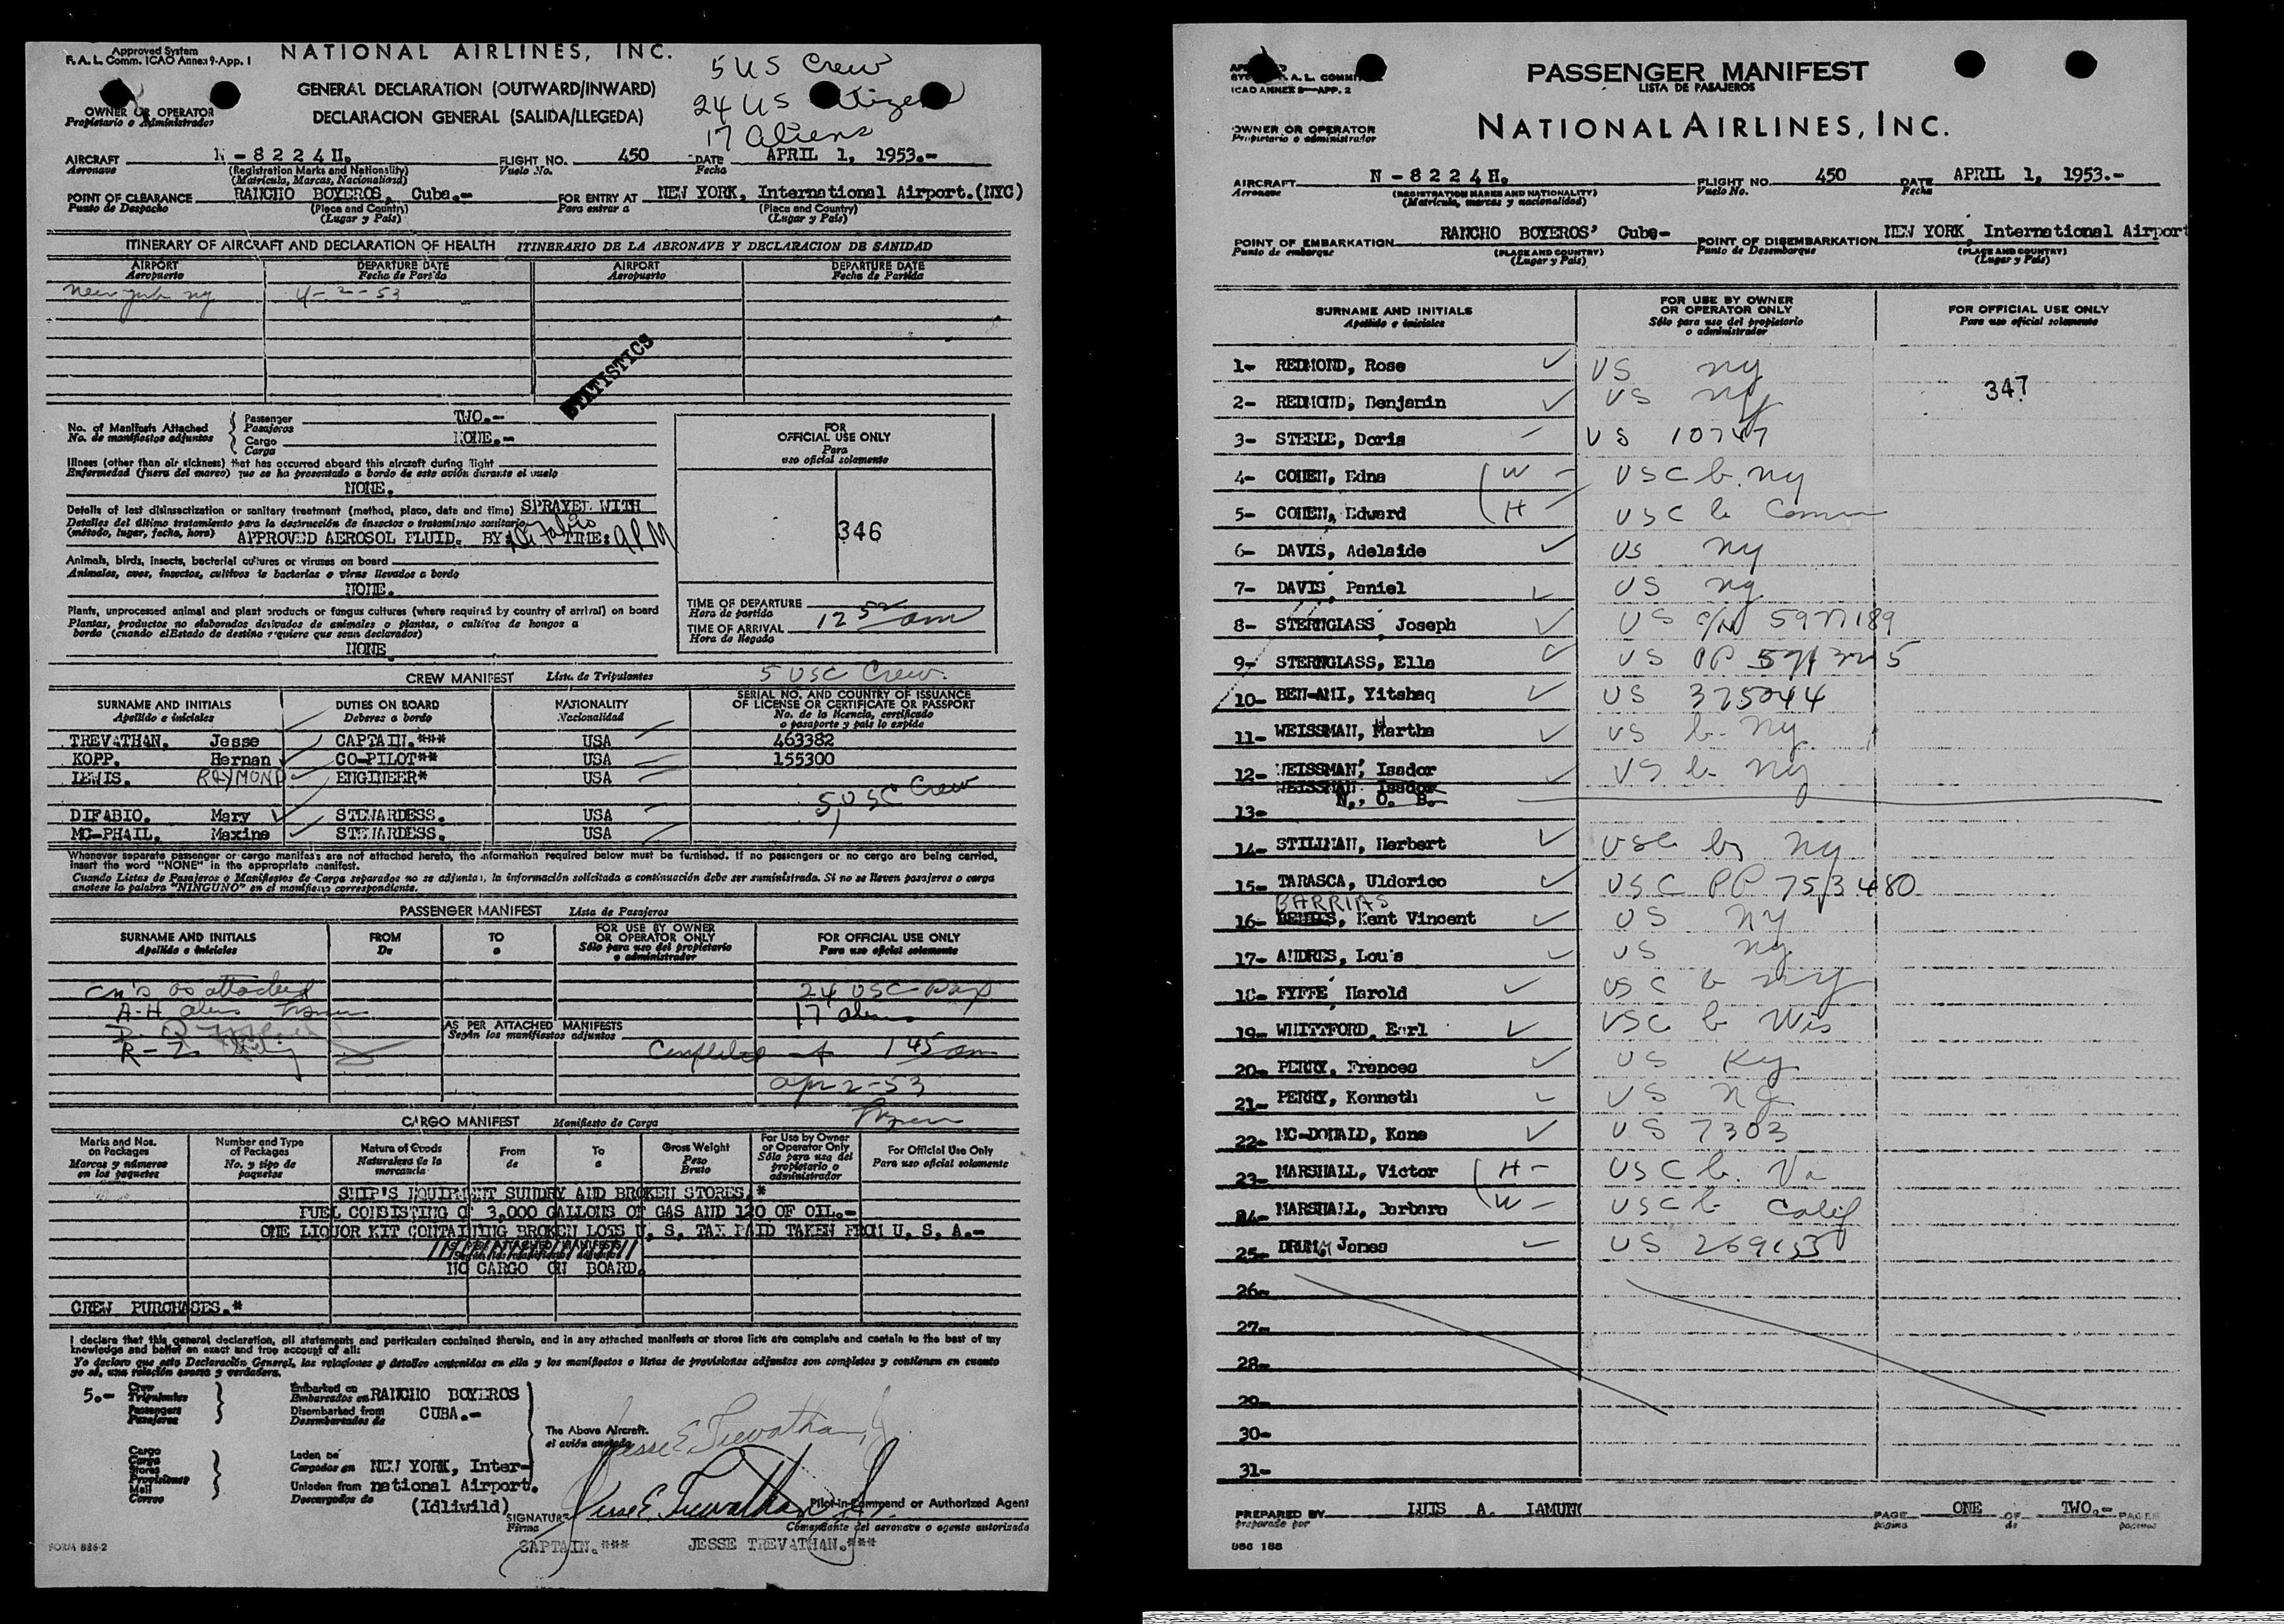 Approved System
F. A. L. Comm. ICAO Annex 9-App. 1
NATIONAL AIRLINES, INC.
GENERAL DECLARATION (OUTWARD/INWARD)
DECLARACION GENERAL (SALIDA/LLEGEDA)
5 US Crew
24 US Citizens
17 Aliens
OWNER OR OPERATOR
Propietario o Administrador
AIRCRAFT N-8224H. FLIGHT NO. 450 DATE APRIL 1, 1953.-
Aeronave (Registration Marks and Nationality) Vuelo No. Fecha
(Matricula, Marcas, Nacionalidad)
POINT OF CLEARANCE RANCHO BOYEROS, Cuba.- FOR ENTRY AT NEW YORK, International Airport.(NYC)
Punto de Despacho (Place and Country) Para entrar a (Place and Country)
(Lugar y Pais) (Lugar y Pais)
ITINERARY OF AIRCRAFT AND DECLARATION OF HEALTH ITINERARIO DE LA AERONAVE Y DECLARACION DE SANIDAD
AIRPORT DEPARTURE DATE AIRPORT DEPARTURE DATE
Aeropuerto Fecha de Partida Aeropuerto Fecha de Partida
New York ny 4-2-53
STATISTICS
No. of Manifests Attached Passenger TWO.-
No. de manifiestos adjuntos Pasajeros
Cargo NONE.-
Carga
FOR
OFFICIAL USE ONLY
Para
uso oficial solamente
346
Illness (other than air sickness) that has occurred aboard this aircraft during flight
Enfermedad (fuera del mareo) que se ha presentado a bordo de este avión durante el vuelo
NONE.
Details of last disinsectization or sanitary treatment (method, place, date and time) SPRAYED WITH
Detalles del último tratamiento para la destrucción de insectos o tratamiento sanitario
(método, lugar, fecha, hora) APPROVED AEROSOL FLUID. BY: DiFabio TIME: 9PM
Animals, birds, insects, bacterial cultures or viruses on board
Animales, aves, insectos, cultivos de bacterias o virus llevados a bordo
NONE.
Plants, unprocessed animal and plant products or fungus cultures (where required by country of arrival) on board
Plantas, productos no elaborados derivados de animales o plantas, o cultivos de hongos a
bordo (cuando el Estado de destino requiere que sean declarados)
NONE
TIME OF DEPARTURE
Hora de partida
TIME OF ARRIVAL 12 52 am
Hora de llegado
CREW MANIFEST Lista de Tripulantes 5 USC Crew.
SURNAME AND INITIALS DUTIES ON BOARD NATIONALITY SERIAL NO. AND COUNTRY OF ISSUANCE
OF LICENSE OR CERTIFICATE OR PASSPORT
Apellido e iniciales Deberes a bordo Nacionalidad No. de la licencia, certificado
o pasaporte y pais lo expide
TREVATHAN. Jesse CAPTAIN.*** USA 463382
KOPP. Hernan CO-PILOT** USA 155300
LEWIS. RAYMOND ENGINEER* USA
5 USC Crew
DIFABIO. Mary STEWARDESS. USA
MC-PHAIL. Maxine STEWARDESS. USA
Whenever separate passenger or cargo manifests are not attached hereto, the information required below must be furnished. If no passengers or no cargo are being carried,
insert the word "NONE" in the appropriate manifest.
Cuando Listas de Pasajeros o Manifiestos de Carga separados no se adjuntan, la información solicitada a continuación debe ser suministrada. Si no se lleven pasajeros o carga
anotese la palabra "NINGUNO" en el manifiesto correspondiente.
PASSENGER MANIFEST Lista de Pasajeros
SURNAME AND INITIALS FROM TO FOR USE BY OWNER
OR OPERATOR ONLY FOR OFFICIAL USE ONLY
Apellido e iniciales De a Sólo para uso del propietario
o administrador Para uso oficial solamente
as attached 24 USC Pax
A-H aliens 17 aliens
AS PER ATTACHED MANIFESTS
Según los manifiestos adjuntos
R-Z Completed at 1 45 am
apr 2-53
CARGO MANIFEST Manifiesto de Carga
Marks and Nos.
on Packages
Marcas y números
en los paquetes
Number and Type
of Packages
No. y tipo de
paquetes
Nature of Goods
Naturaleza de la
mercancia
From
de
To
a
Gross Weight
Peso
Bruto
For Use by Owner
or Operator Only
Sólo para uso del
propietario o
administrador
For Official Use Only
Para uso oficial solamente
SHIP'S EQUIPMENT SUNDRY AND BROKEN STORES.*
FUEL CONSISTING OF 3,000 GALLONS OF GAS AND 120 OF OIL.-
ONE LIQUOR KIT CONTAINING BROKEN LOTS U. S. TAX PAID TAKEN FROM U. S. A.-
NO CARGO ON BOARD.
CREW PURCHASES.*
I declare that this general declaration, all statements and particulars contained therein, and in any attached manifests or stores lists are complete and contain to the best of my
knowledge and belief an exact and true account of all:
Yo declaro que esta Declaración General, las relaciones y detalles contenidos en ella y los manifiestos o listas de provisiones adjuntos son completos y contienen en cuanto
yo sé, una relación exacta y verdadera.
5.- Crew
Tripulantes
Passengers
Pasajeros
Embarked on RANCHO BOYEROS
Embarcados en
Disembarked from CUBA.-
Desembarcados de
Cargo
Carga
Stores
Provisiones
Mail
Correo
Laden on
Cargados en NEW YORK, Inter-
Unladen from national Airport.
Descargados de (Idlewild)
The Above Aircraft.
el avión anotado
Jesse E Trevathan, Jr.
Jesse E. Trevathan Jr.
SIGNATURE Pilot-in-Command or Authorized Agent
Firma Comandante del aeronave o agente autorizado
CAPTAIN.*** JESSE TREVATHAN.***
FORM 886-2
F. A. L. COMMITTEE
ICAO ANNEX 9-APP. 2
PASSENGER MANIFEST
LISTA DE PASAJEROS
NATIONAL AIRLINES, INC.
OWNER OR OPERATOR
Propietario o administrador
AIRCRAFT N-8224H. FLIGHT NO. 450 DATE APRIL 1, 1953.-
Aeronave (REGISTRATION MARKS AND NATIONALITY) Vuelo No. Fecha
(Matricula, marcas y nacionalidad)
POINT OF EMBARKATION RANCHO BOYEROS' Cuba- POINT OF DISEMBARKATION NEW YORK, International Airport
Punto de embarque (PLACE AND COUNTRY) Punto de Desembarque (PLACE AND COUNTRY)
(Lugar y Pais) (Lugar y Pais)
SURNAME AND INITIALS
Apellido e iniciales
FOR USE BY OWNER
OR OPERATOR ONLY
Sólo para uso del propietario
o administrador
FOR OFFICIAL USE ONLY
Para uso oficial solamente
1- REDMOND, Rose US ny
347
2- REDMOND, Benjamin US ny
3- STEELE, Doris US 10747
4- COHEN, Edna W USC b. ny
5- COHEN, Edward H USC b Conn
6- DAVIS, Adelaide US ny
7- DAVIS, Daniel US ny
8- STERNGLASS, Joseph US C/N 5977189
9- STERNGLASS, Ella US PP
10- BEN-AMI, Yitshaq US 375044
11- WEISSMAN, Martha US b- ny
12- WEISSMAN, Isador US b- ny
WEISSMAN Isador
13- N. O. B.
14- STILLMAN, Herbert USC b ny
15- TARASCA, Uldorico USC PP 753480
BARRIAS
16- Kent Vincent US NY
17- ANDRES, Lou's US ny
18- FYFFE Harold USC b ny
19- WHITTFORD, Earl USC b Wis
20- PERRY, Frances US Ky
21- PERRY, Kenneth US
22- MC-DONALD, Kane US 7303
23- MARSHALL, Victor H- USC b. Va
24- MARSHALL, Barbara W- USC b Calif
25- DRUM, James US
26-
27-
28-
29-
30-
31-
PREPARED BY LUIS A. PAGE ONE OF TWO.- PAGES
preparado por pagina de paginas
886 188